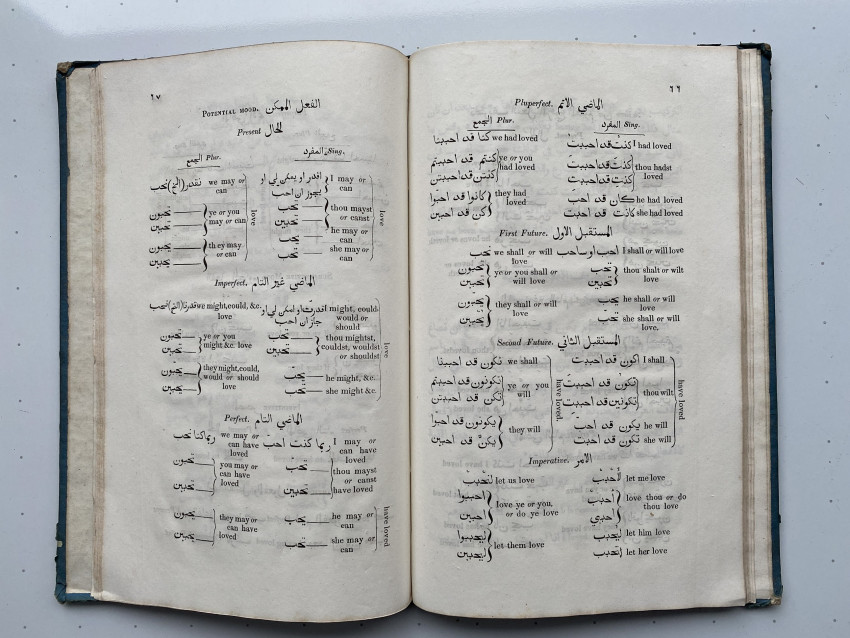 ٦٦
Pluperfect. الماضي الاتم
الجمع Plur. المفرد Sing.
كنا قد احببنا we had loved كنتُ قد احببتُ I had loved
كنتم قد احببتم ye or you had loved كنتَ قد احببتَ thou hadst loved
كنتن قد احببتن كنتِ قد احببتِ
كانوا قد احبوا they had loved كان قد احب he had loved
كن قد احببن كانت قد احبت she had loved
First Future. المستقبل الاول
نحب we shall or will love احب او ساحب I shall or will love
تحبون ye or you shall or will love تحب thou shalt or wilt love
تحببن تحبين
يحبون they shall or will love يحب he shall or will
يحببن تحب she shall or will love.
Second Future. المستقبل الثاني
نكون قد احببنا we shall اكون قد احببت I shall
تكونون قد احببتم ye or you will تكون قد احببتَ thou wilt
تكن قد احببتن تكونين قد احببتِ
يكونون قد احبوا they will يكون قد احب he will
يكن قد احببن تكون قد احبت she will
have loved. have loved
Imperative. الامر
لنحبب let us love لاحبب let me love
احببوا love ye or you, or do ye love احبب love thou or do thou love
احببن احببي
ليحببوا let them love ليحبب let him love
ليحببن لتحبب let her love
٦٧
POTENTIAL MOOD. الفعل الممكن
Present الحال
الجمع Plur. المفرد Sing.
نقدر (الخ) نحب we may or can اقدر او يمكن لي او يجوز ان احب I may or can
تحبون ye or you may or can تحب thou mayst or canst
تحببن تحبين
يحبون they may or can يحب he may or can
يحببن تحب she may or can
love love
Imperfect. الماضي غير التام
قدرنا (الخ) نحب we might, could, &c. love اقدرت او امكن لي او جاز ان احب I might, could, would or should
تحبون ye or you might &c. love تحب thou mightst, couldst, wouldst or shouldst
تحببن تحبين
يحبون they might, could, would or should love يحب he might, &c.
يحببن تحب she might &c.
love
Perfect. الماضي التام
ربما كنا نحب we may or can have loved ربما كنت احب I may or can have loved
تحبون you may or can have loved تحب thou mayst or canst have loved
تحببن تحبين
يحبون they may or can have loved يحب he may or can
يحببن تحب she may or can
have loved